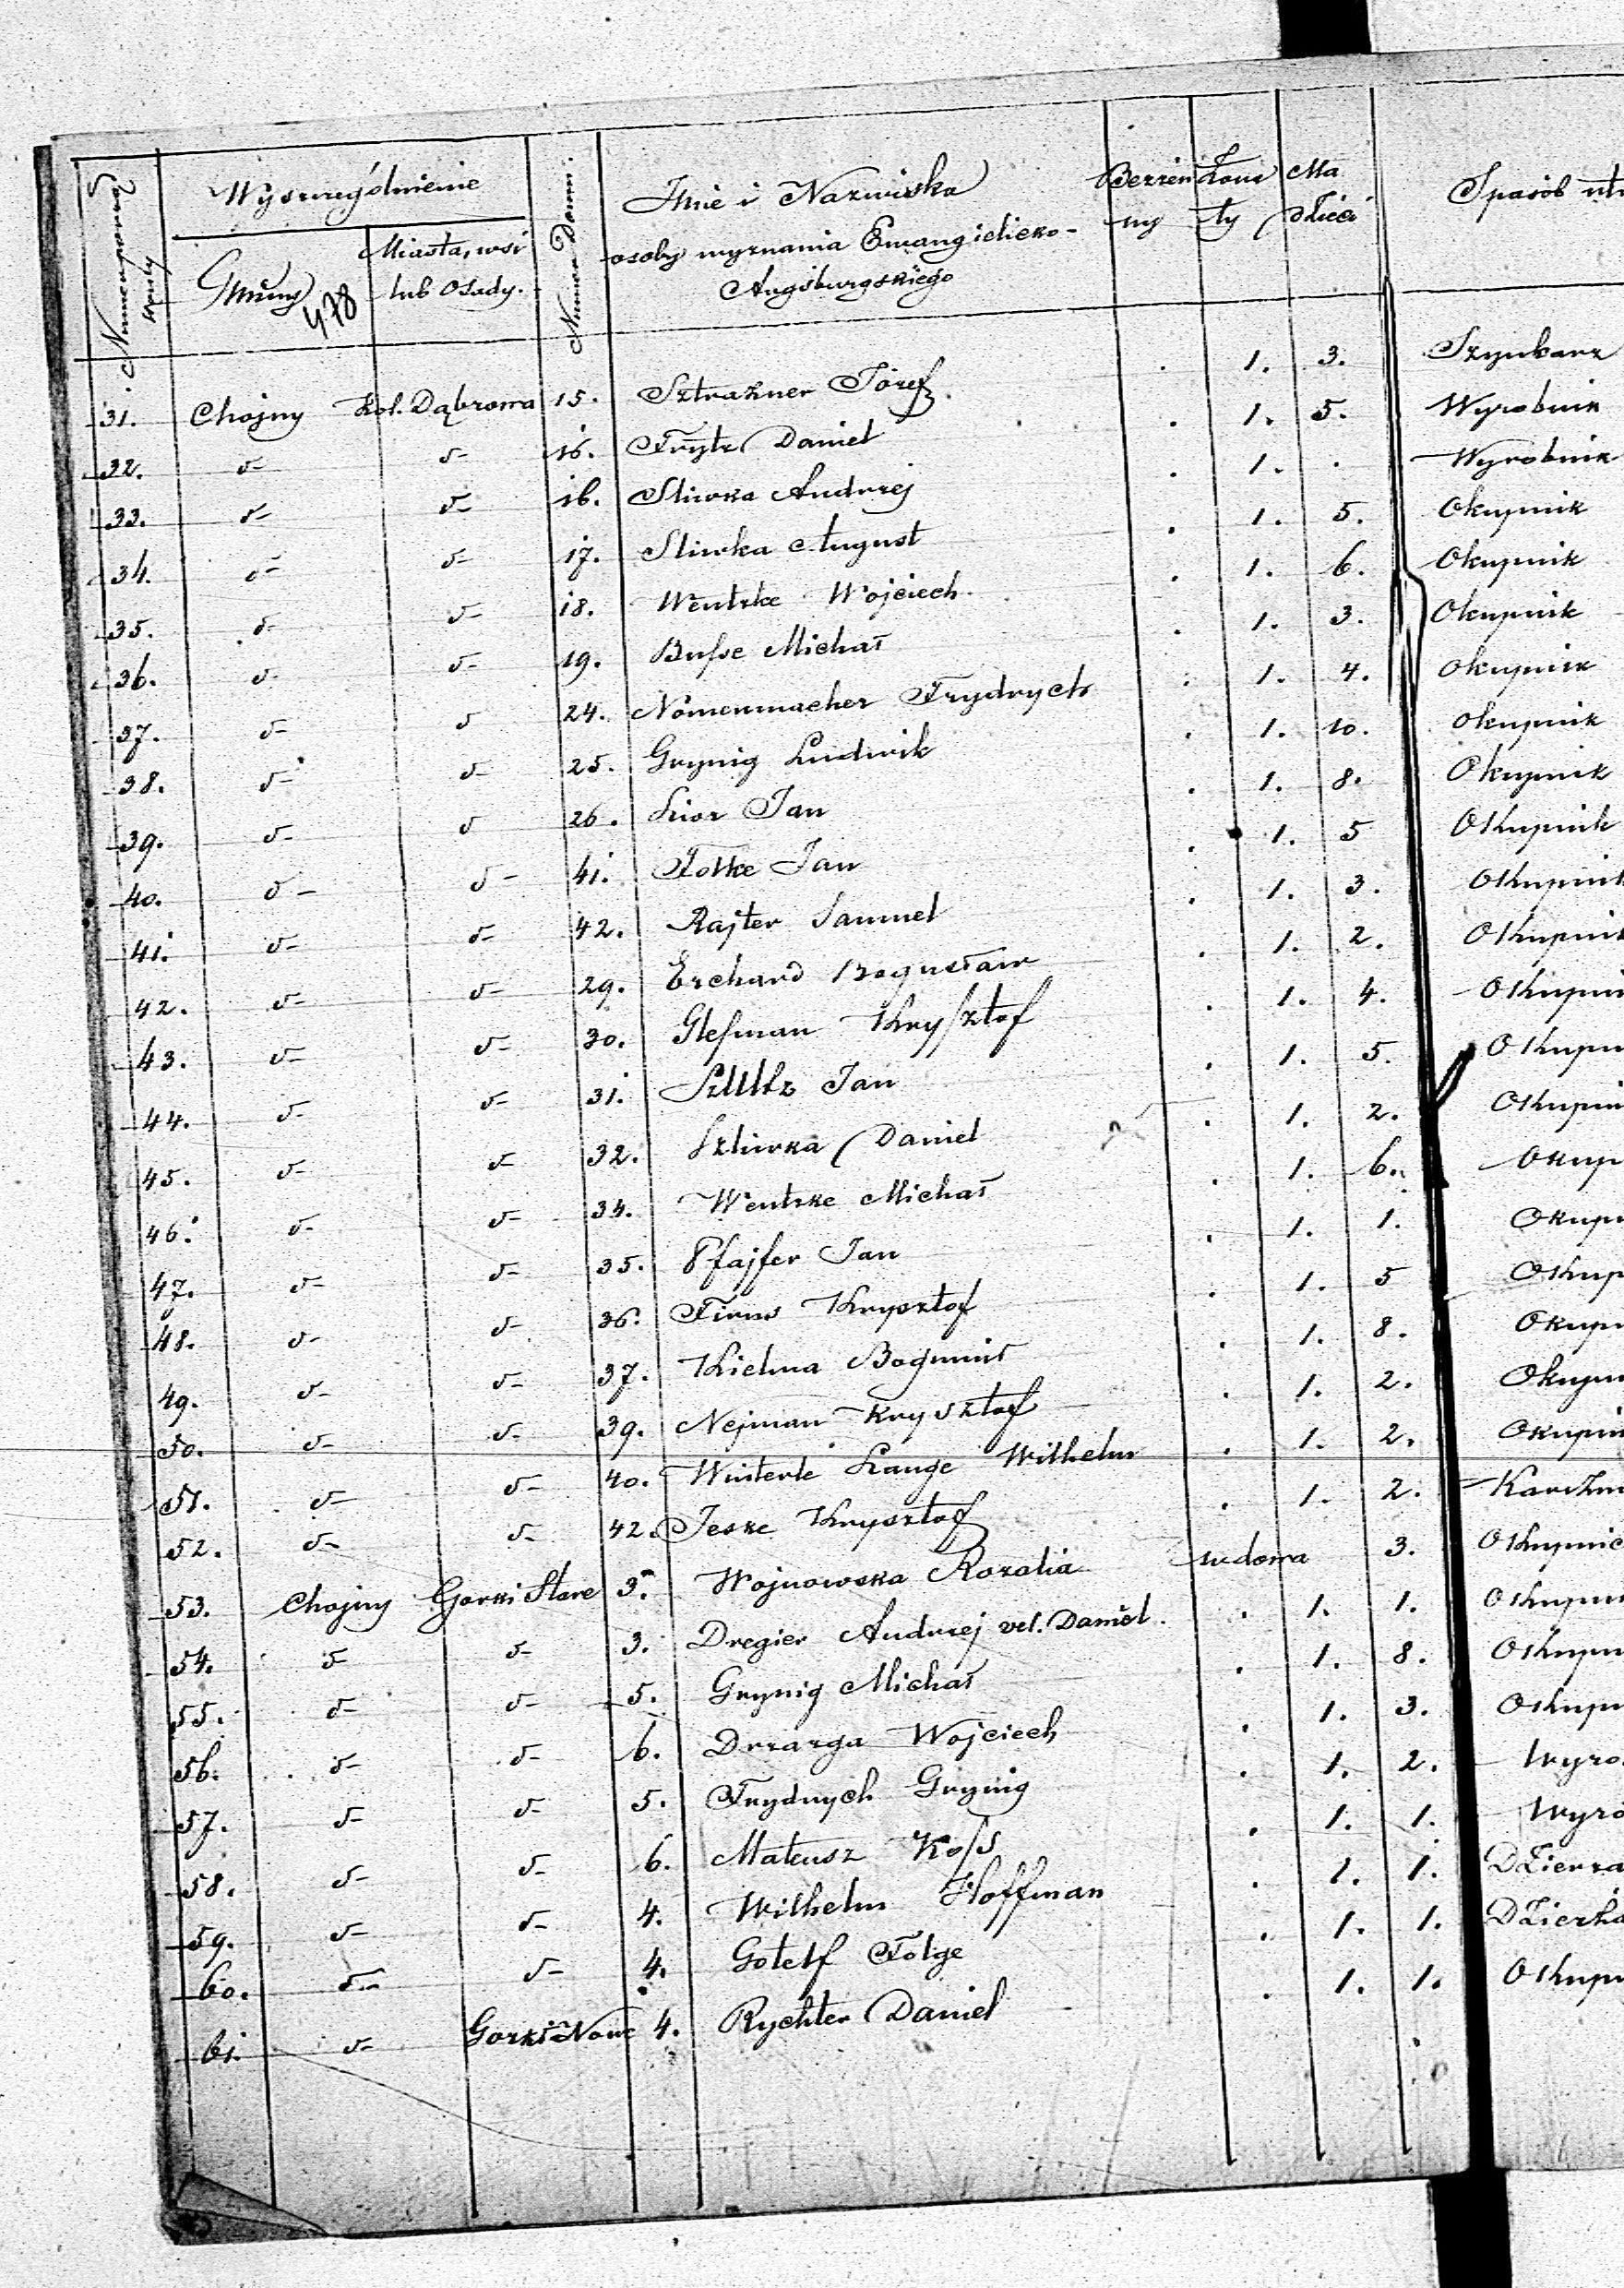 Numer porządkowy Wyszczególnienie Numer Domu. Imie i Nazwisko Bezżen Żona Ma
Gminy Miasta, wsi osoby wyznania Ewangielicko- ny ty dzieci Sposób
478 lub Osady. Augsburgskiego
31. Chojny Kol. Dąbrowa 15. Sztrakner Józef . 1. 3. Szynkarz
32. d- d- 16. Frytz Daniel . 1. 5. Wyrobnik
33. d- d- 16. Sliwka Andrzej . 1. . Wyrobnik
34. d- d- 17. Sliwka August . 1. 5. Okupnik
35. d- d- 18. Wentzke Wojciech . 1. 6. Okupnik
36. d- d- 19. Busse Michał . 1. 3. Okupnik
37. d- d 24. Nönenmacher Frydrych . 1. 4. Okupnik
38. d- d- 25. Grynig Ludwik . 1. 10. Okupnik
39. d- d 26. Lior Jan . 1. 8. Okupnik
40. d- d- 41. Folke Jan . 1. 5 Okupnik
41. d- d- 42. Rajter Samuel . 1. 3. Okupnik
42. d- d- 29. Erchard Bogusław . 1. 2. Okupnik
43. d- d- 30. Glesman Krysztof . 1. 4. Okupni
44. d- d- 31. Szultz Jan . 1. 5. Okupn
45. d- d- 32. Szliwka Daniel . 1. 2. Okupni
46. d- d- 34. Wentzke Michał . 1. 6. Okup
47. d- d- 35. Pfajfer Jan . 1. 1. Okup
48. d- d- 36. Firus Krysztof . 1. 5 Okup
49. d- d- 37. Kielma Bogumił . 1. 8. Okup
50. d- d- 39. Nejman Krysztof . 1. 2. Okupn
51. d- d- 40. Winterle Lange Wilhelm . 1. 2. Okupni
52. d- d- 42. Jeske Krysztof . 1. 2. Karczm
53. Chojny Gorki Stare 3. Wojnowska Rozalia wdowa 3. Okupnic
54. d- d- 3. Dregier Andrzej vel. Daniel . 1. 1. Okupni
55. d- d- 5. Grynig Michał . 1. 8. Okupn
56. d- d- 6. Drzazga Wojciech . 1. 3. Okupn
57. d- d- 5. Frydrych Grynig . 1. 2. Wyro
58. d- d- 6. Mateusz Koss . 1. 1. Wyro
59. d- d- 4. Wilhelm Hoffman . 1. 1. Dzierża
60. d- d- 4. Gotelf Folge . 1. 1. Dzierża
61. d- Gorki Nowe 4. Rychter Daniel . 1. 1. Okupn